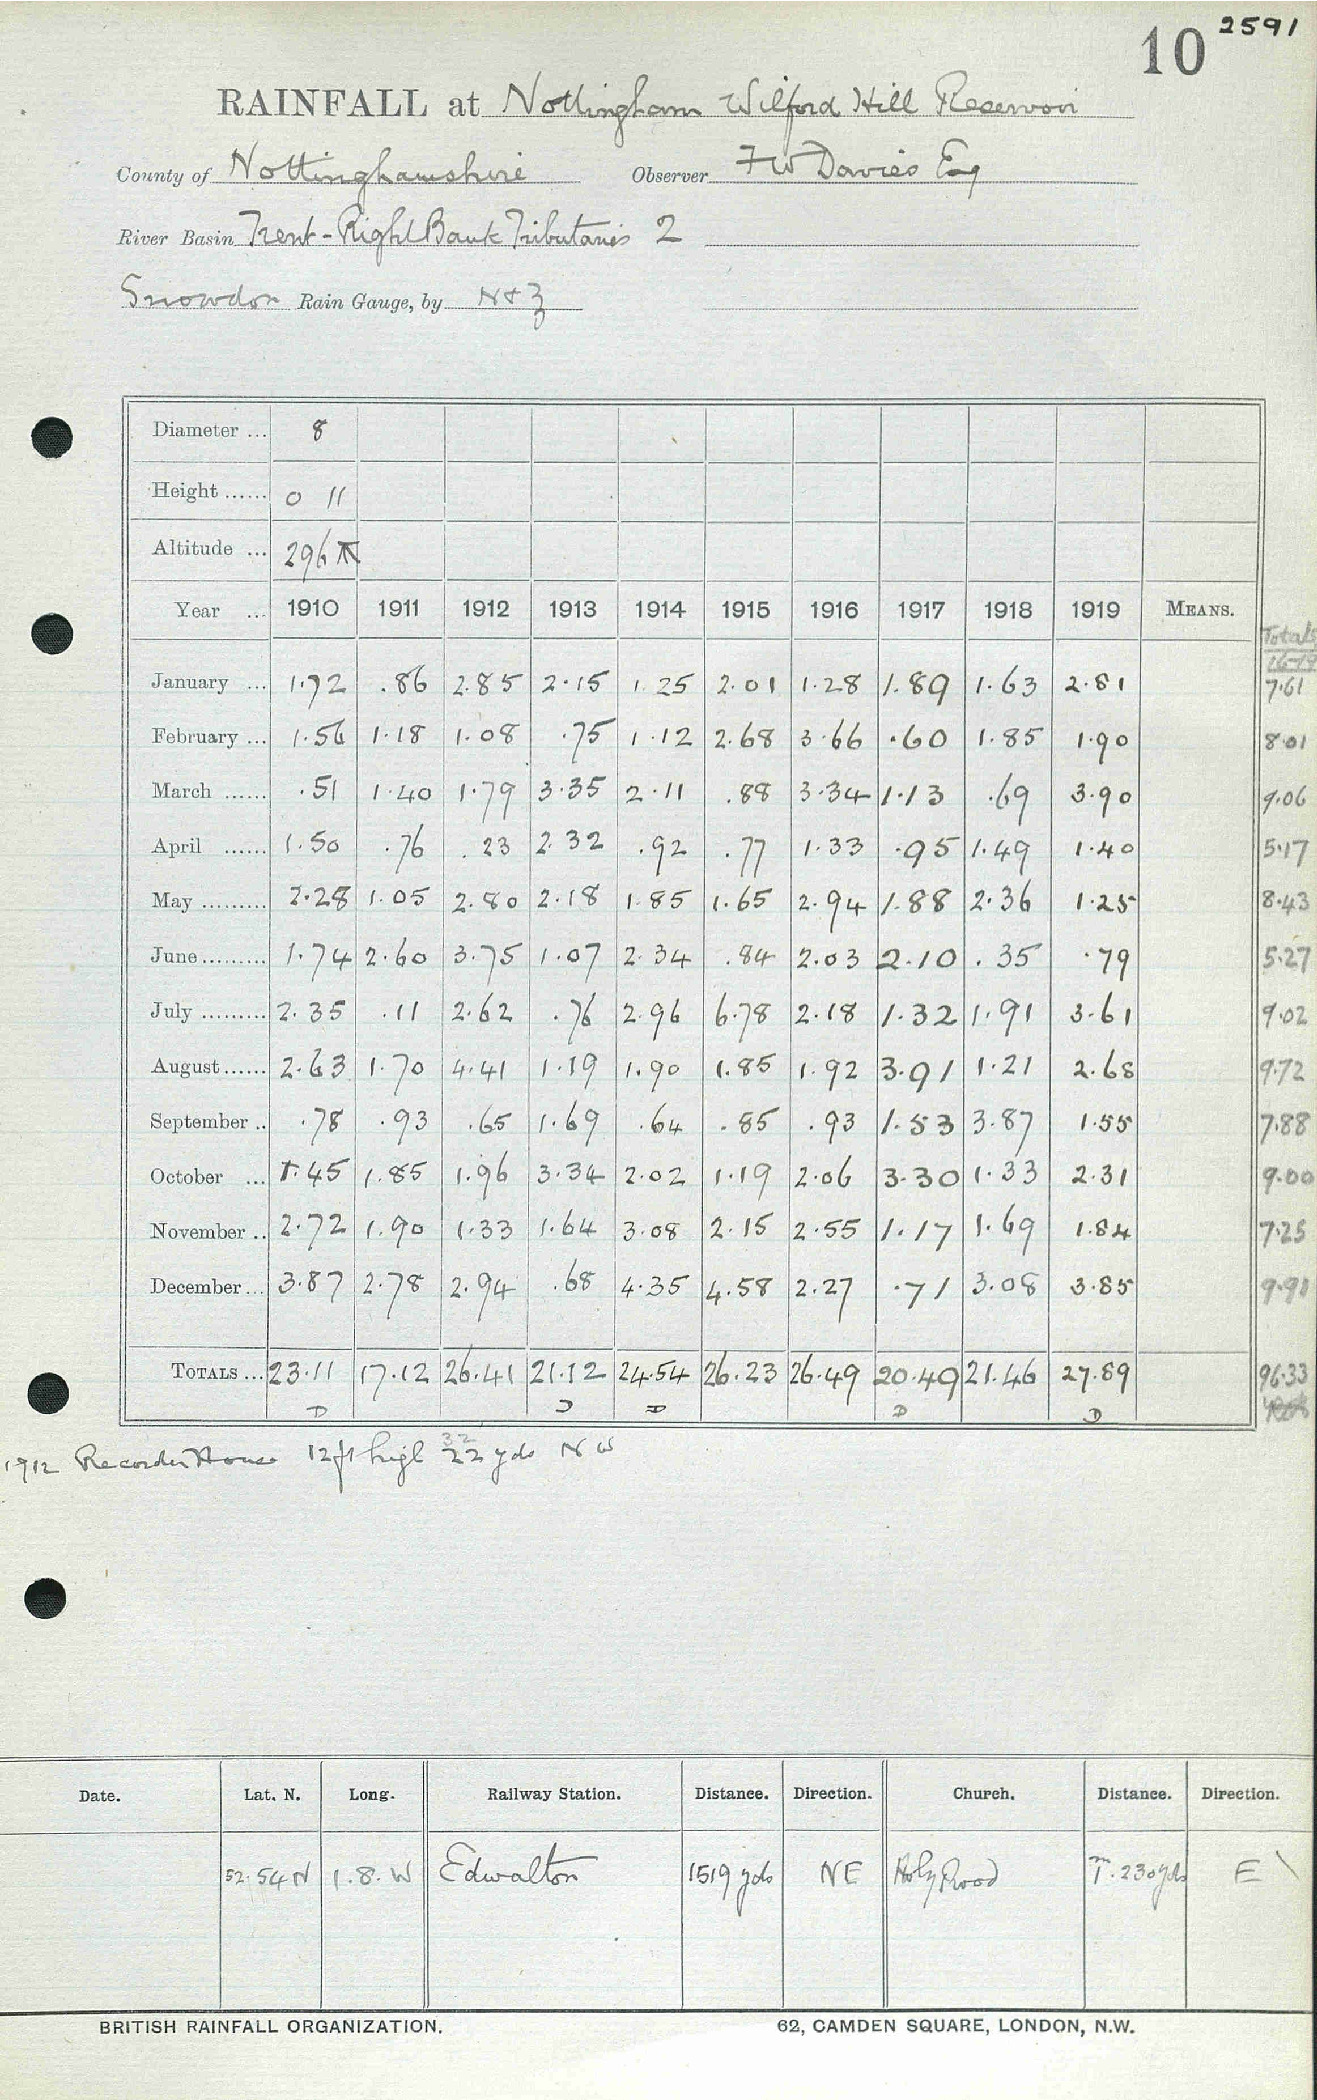 10 2591
RAINFALL at Nottingham Wilford Hill Reservoir
County of Nottinghamshire Observer FW Davies Esq
River Basin Trent - Right Bank Tributaries 2
Snowdon Rain Gauge, by N & Z
Diameter ... 8
Height ...... 0 11
Altitude ... 296
Year ... 1910 1911 1912 1913 1914 1915 1916 1917 1918 1919 MEANS. Totals
16-19
January ... 1.72 .86 2.85 2.15 1.25 2.01 1.28 1.89 1.63 2.81 7.61
February ... 1.56 1.18 1.08 .75 1.12 2.68 3.66 .60 1.85 1.90 8.01
March ...... .51 1.40 1.79 3.35 2.11 .88 3.34 1.13 .69 3.90 9.06
April ...... 1.50 .76 .23 2.32 .92 .77 1.33 .95 1.49 1.40 5.17
May ......... 2.28 1.05 2.80 2.18 1.85 1.65 2.94 1.88 2.36 1.25 8.43
June ......... 1.74 2.60 3.75 1.07 2.34 .84 2.03 2.10 .35 .79 5.27
July ......... 2.35 .11 2.62 .76 2.96 6.78 2.18 1.32 1.91 3.61 9.02
August ...... 2.63 1.70 4.41 1.19 1.90 1.85 1.92 3.91 1.21 2.68 9.72
September .. .78 .93 .65 1.69 .64 .85 .93 1.53 3.87 1.55 7.88
October ... 1.45 1.85 1.96 3.34 2.02 1.19 2.06 3.30 1.33 2.31 9.00
November .. 2.72 1.90 1.33 1.64 3.08 2.15 2.55 1.17 1.69 1.84 7.25
December ... 3.87 2.78 2.94 .68 4.35 4.58 2.27 .71 3.08 3.85 9.91
TOTALS ... 23.11 17.12 26.41 21.12 24.54 26.23 26.49 20.49 21.46 27.89 96.33
D D D D D
1912 Recorder House 12 ft high 22 yds NW
32
Date. Lat. N. Long. Railway Station. Distance. Direction. Church. Distance. Direction.
52.54 N 1.8.W Edwalton 1519 yds NE Holy Rood 230 yds E
BRITISH RAINFALL ORGANIZATION. 62, CAMDEN SQUARE, LONDON, N.W.